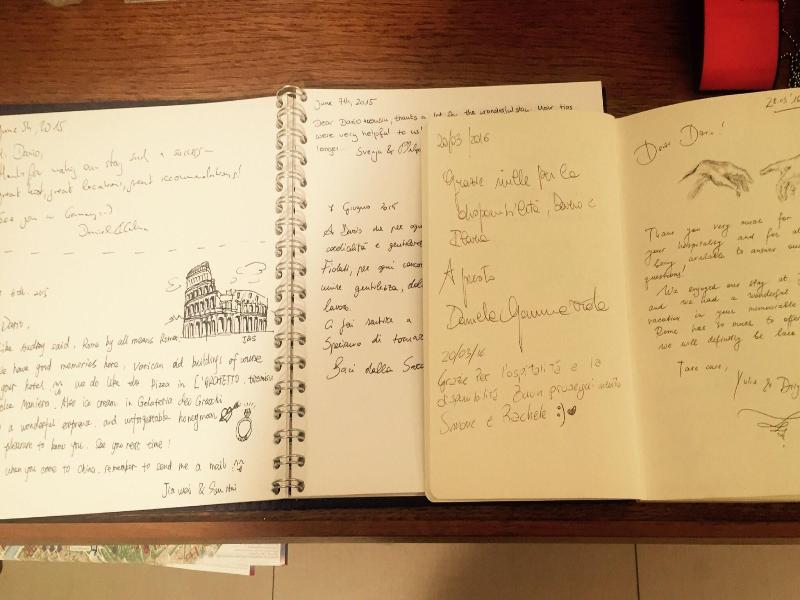 June 5th, 2015
Hi Dario,
thanks for making our stay such a success –
great host, great location, great recommendations!
See you in Germany :-)
Daniel &
6th, 2015
Dario,
like Audrey said, Rome by all means Rome.
We have good memories here, Vatican old buildings of course
your hotel. we do like the Pizza in L'ARCHETTO,
Also ice cream in Gelateria dei Gracchi
a wonderful experience, and unforgettable honeymoon
pleasure to know you. See you next time!
when you come to China, remember to send me a mail
Jia wei &
June 7th, 2015
Dear Dario, thanks a lot for the wonderful stay. Your tips
were very helpful to us!
longer... Svenja &
7 Giugno 2015
A Dario che per ogni
cordialità e gentilezza
Fidati, per ogni
unire gentilezza,
lavoro.
Ci fai sentire a
Speriamo di tornare
Baci dalla
20/03/2016
Grazie mille per la
disponibilità, Dario e
Ilaria
A presto
Daniele Gemma Viola
20/03/16
Grazie per l'ospitalità e la
disponibilità Buon proseguimento
Simone e Rachele :) ♥
28.03.'16
Dear Dario!
Thank you very much for
your hospitality and for
being available to answer our
questions!
We enjoyed our stay at
and we had a wonderful
vacation in your memorable
Rome has so much to offer
we will definitly be back
Take care,
Yulia &